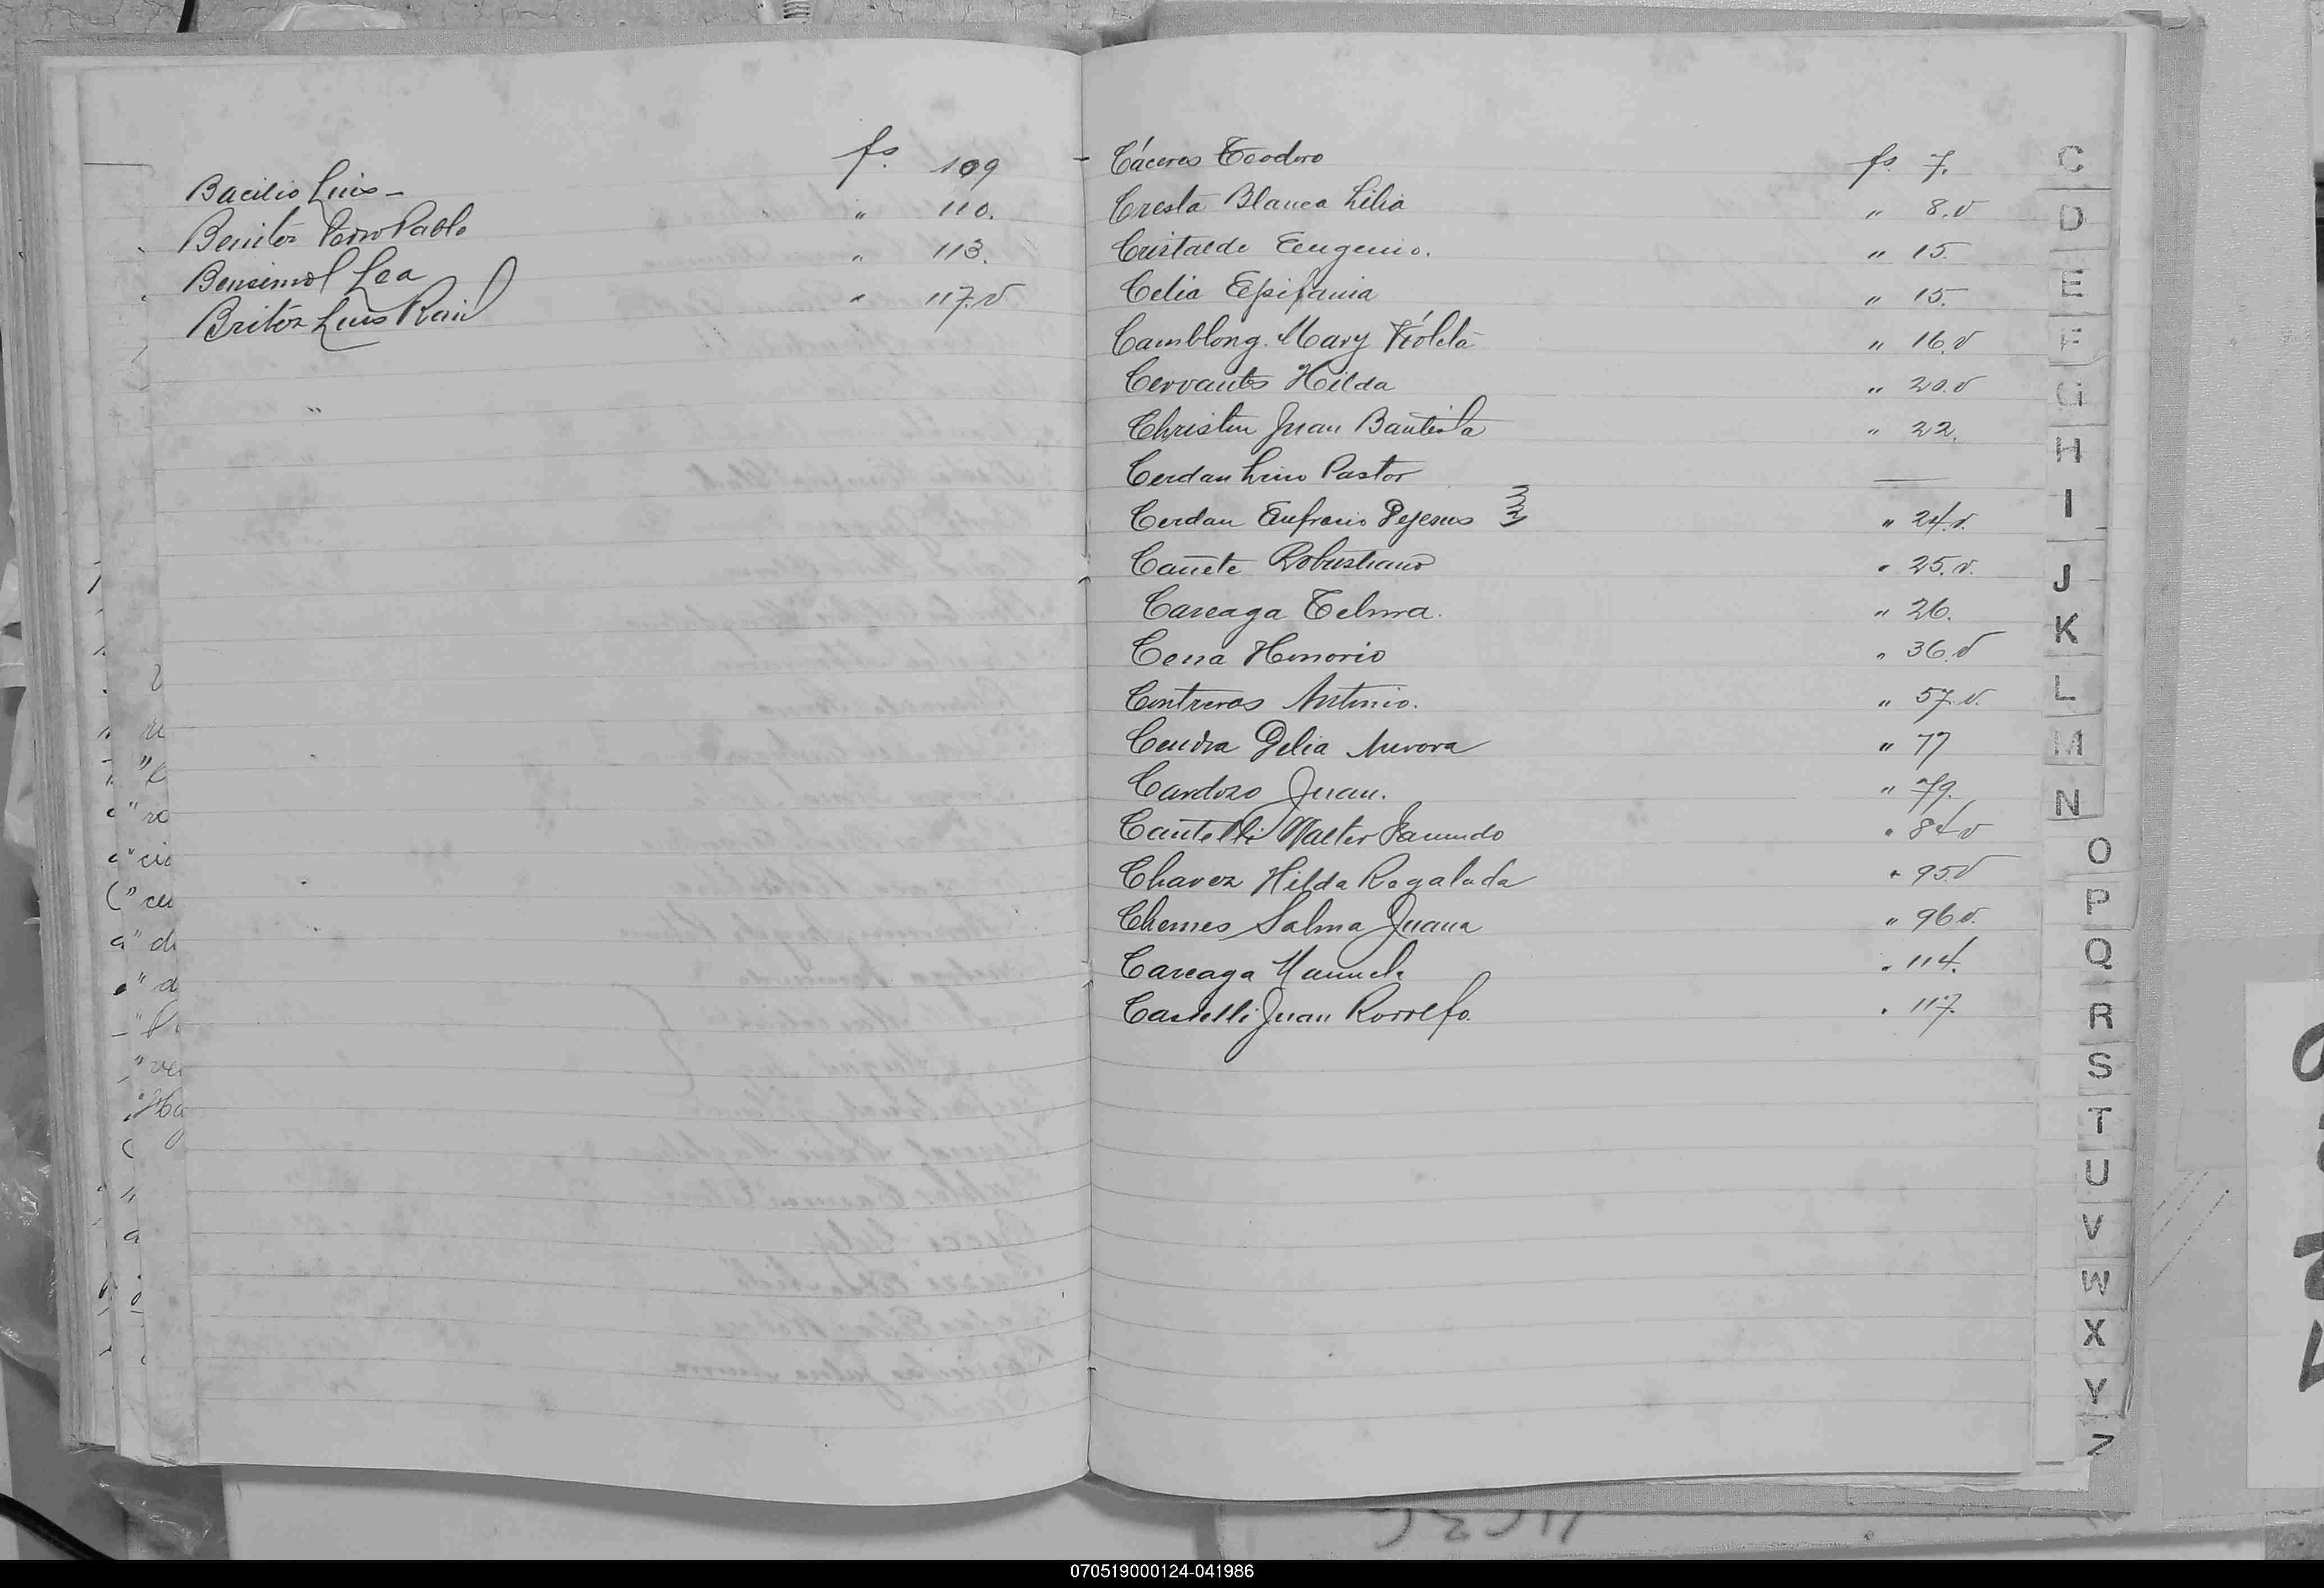 fs. 109
Bacilio Luis –
Benitez Pedro Pablo " 110.
Bensimol Lea " 113.
Britez Luis Raúl " 117.v
Cáceres Teodoro fs 7.
Cresta Blanca Lilia " 8.v
Cristaldo Eugenio. " 15.
Celia Epifania " 15.
Camblong. Mary Violeta " 16.v
Cervantes Hilda " 20.v
Christen Juan Bautista " 22.
Cerdan Lino Pastor —
Cerdan Eufracio Dejesus " 24.v.
Cañete Robustiano " 25.v.
Careaga Telma. " 26.
Cena Honorio " 36.v
Contreras Antonio. " 57.v.
Cendra Delia Aurora " 77
Cardozo Juan. " 79.
Cantelli Walter Facundo " 84 v
Chavez Hilda Regalada " 95v
Chemes Salma Juana " 96 v.
Careaga Manuel. " 114.
Castelli Juan Rodolfo. " 117.
C
D
E
F
G
H
I
J
K
L
M
N
O
P
Q
R
S
T
U
V
W
X
Y
Z
070519000124-041986